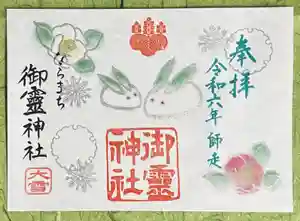 奉拝
令和六年 師走
ならまち
御靈神社
大雪
御靈神社